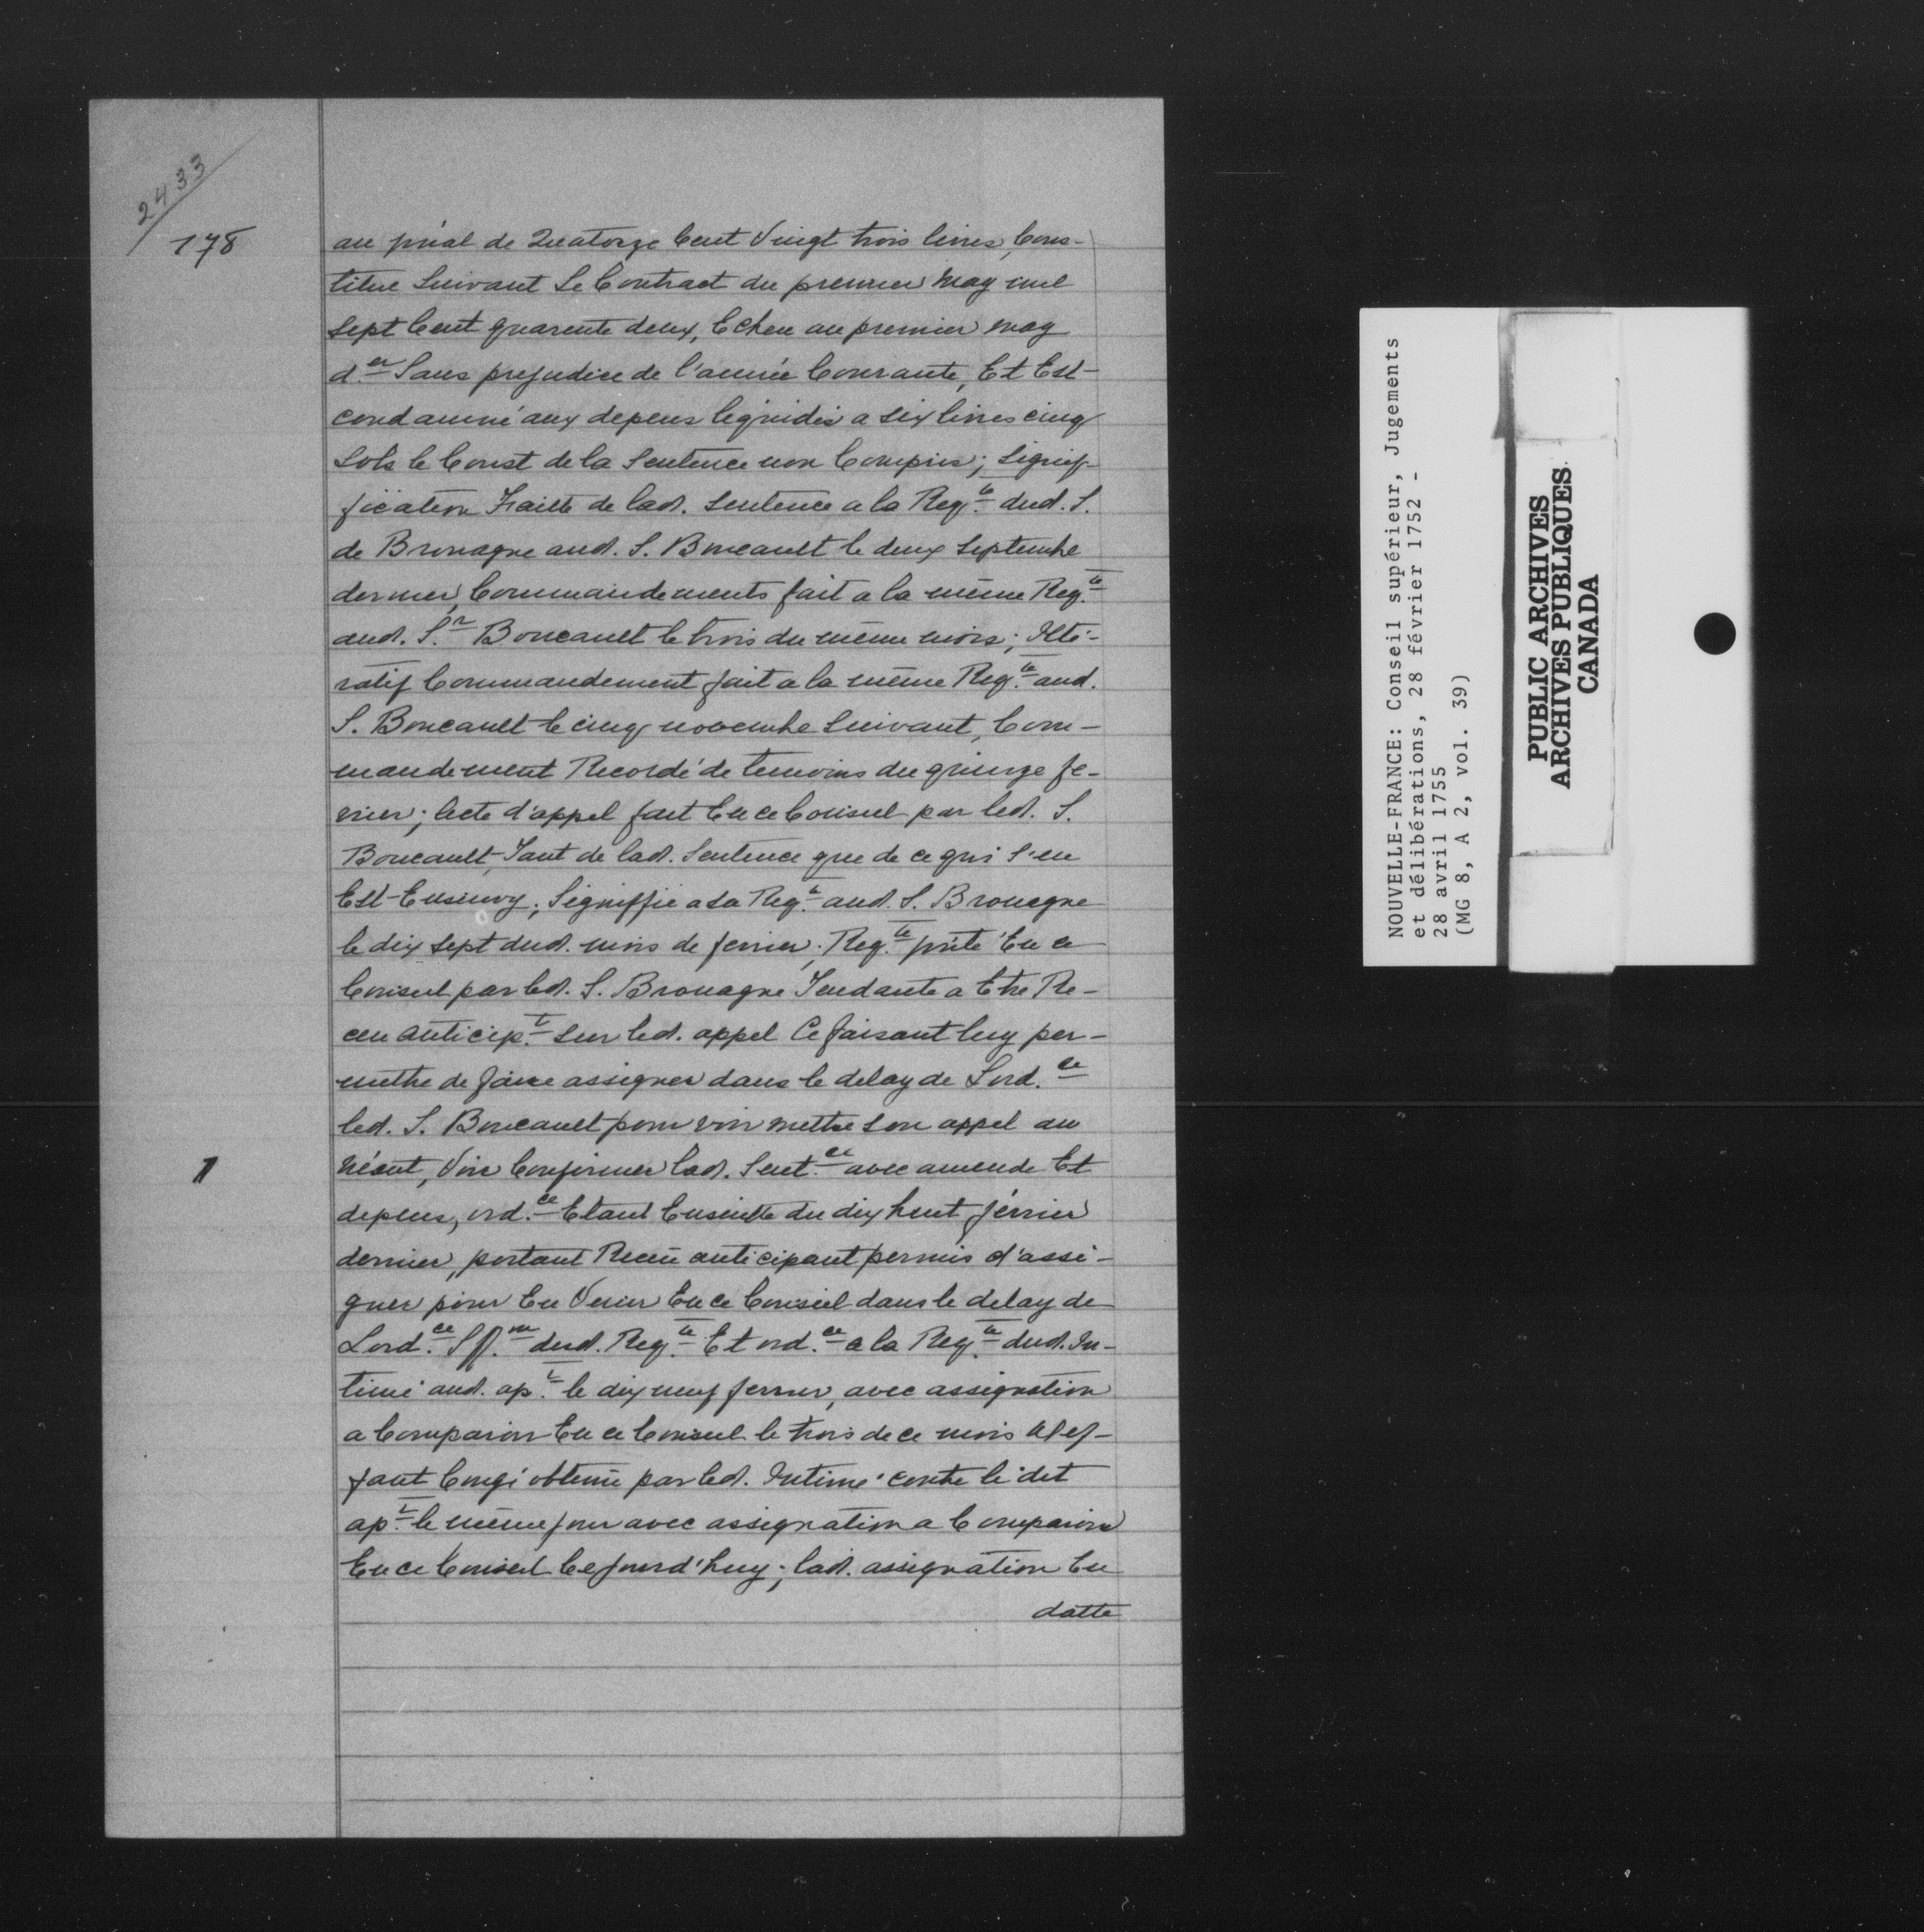 2433
178
au prãal de Quatorze Cent Vingt trois livres, Cons-
titué Suivant Le Contract du premier May mil
Sept Cent quarente deux, Echeu au premier may
d.er Sans prejudice de l'année Courante, Et Est
condamné aux depens liquidés a six livres cinq
Sols le Coust de la Sentence non Compris; Signif-
fication Faitte de lad. sentence a la Reqte. dud. S.
de Brouague aud. S. Boucault le deux septembre
dernier, Commandements fait a la même Reqte.
aud. S.r Boucault le trois du même mois; Ité-
ratif Commandement fait a la même Reqte. aud.
S. Boucault le cinq novembre Suivant, Com-
mandement Recordé de temoins du quinze fe-
vrier; acte d'appel fait En ce Conseil par led. S.
Boucault, Tant de lad. Sentence que de ce qui s'en
Est Ensuivy; Signiffié a sa Reqte. aud. S. Brouague
le dix sept dud. mois de fevrier; Reqte. prñtée En ce
Conseil par led. S. Brouague Tendante a Etre Re-
ceu anticipt. sur led. appel Ce faisant luy per-
mettre de faire assigner dans le delay de Lord.ce
led. S. Boucault pour voir mettre son appel au
1
néant, Voir Confirmer lad. Sent.ce avec amende Et
depens, ord.ce Etant Ensuitte du dix huit février
dernier, portant Receu anticipant permis d'assi-
gner pour En Venir En ce Conseil dans le delay de
Lord.ce Sff.on dud. Reqte. Et ord.ce a la Reqte. dud. In-
timé aud. apt. le dix neuf fevrier, avec assignation
a Comparoir En ce Conseil le trois de ce mois
faut Congé obtenu par led. Intimé contre le dit
apt. le même jour avec assignation a Comparoir
En ce Conseil Cejourd'huy; lad. assignation En
datte
NOUVELLE-FRANCE: Conseil supérieur, Jugements
et délibérations, 28 février 1752 -
28 avril 1755
(MG 8, A 2, vol. 39)
PUBLIC ARCHIVES
ARCHIVES PUBLIQUES
CANADA